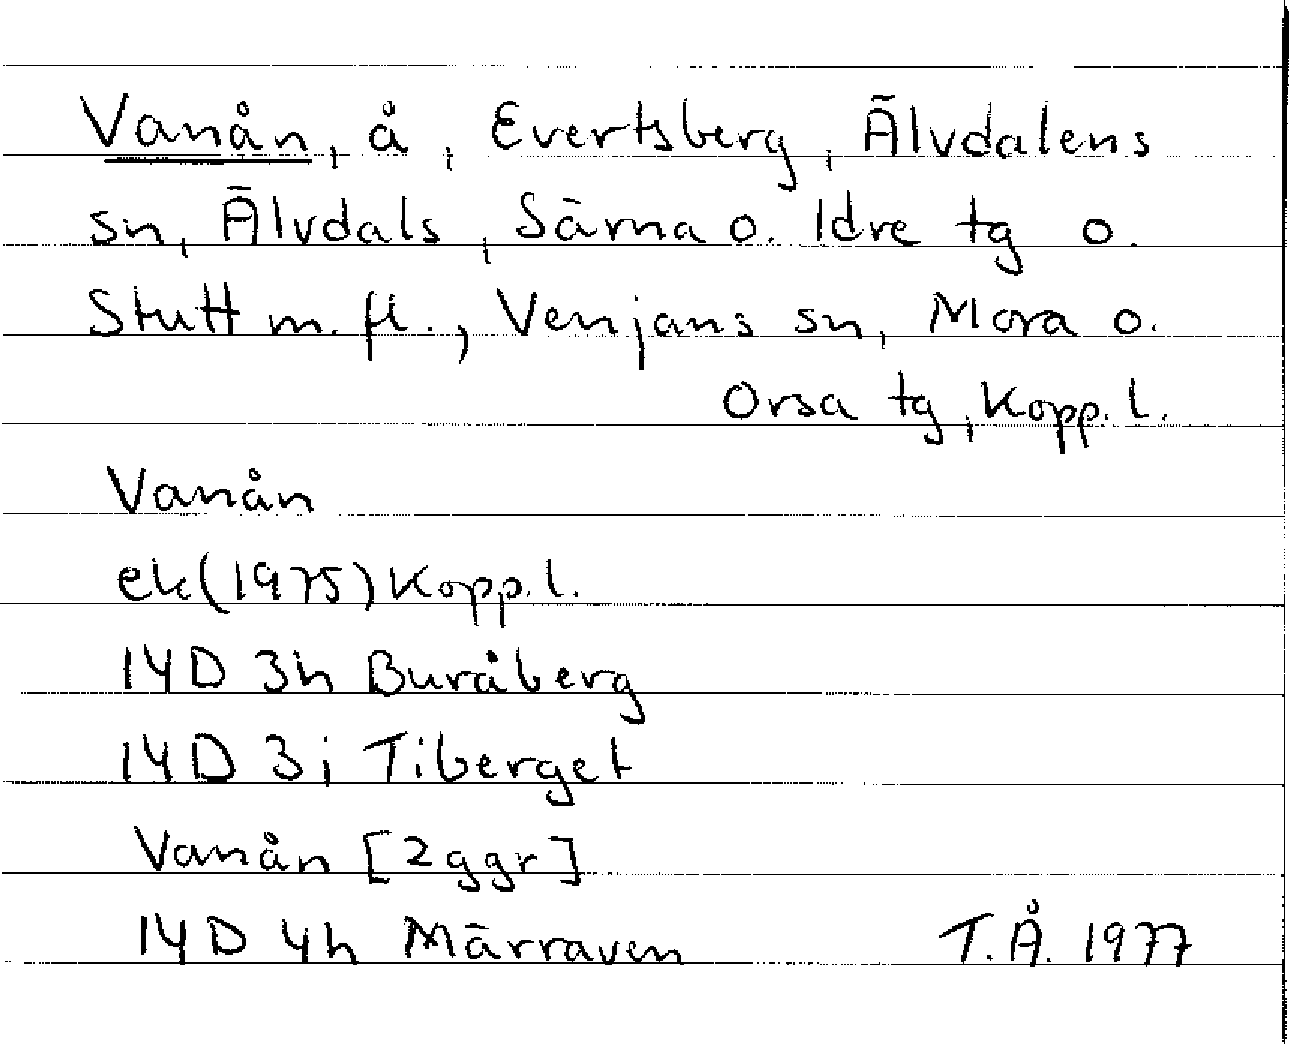 Vanån, å, Evertsberg, Älvdalens
sn, Älvdals, Särna o. Idre tg o.
Stutt m. fl., Venjans sn, Mora o.
Orsa tg, Kopp. l.
Vanån
ek(1975) Kopp. l.
14D 3h Buråberg
14D 3i Tiberget
Vanån [2ggr]
14D 4h Märraven T.Å. 1977